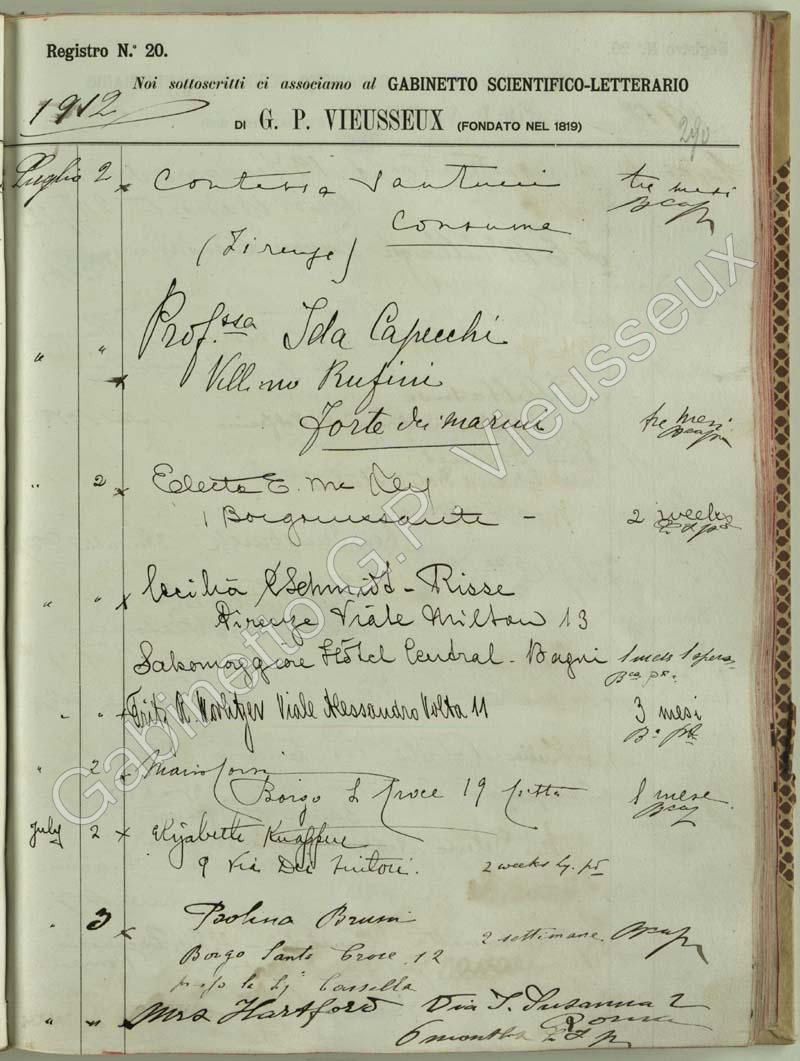 Registro N.º 20.
Noi sottoscritti ci associamo al GABINETTO SCIENTIFICO-LETTERARIO
1912
DI G. P. VIEUSSEUX (FONDATO NEL 1819)
290
Luglio 2 x Contessa tre mesi
Consuma
(Firenze)
Prof.ssa Ida Capecchi
" " x Villino Rufini
Forte dei marmi tre mesi
" 2 x Electa E.
1 Borgognissanti - 2 weeks
" " x Cecilia Schmidt-Risse
Firenze Viale Milton 13
Salsomaggiore Hôtel Central - Bagni 1 mese 1 opera
" " x Fritz Viale Alessandro Volta 11 3 mesi
" 2 x Mario Corsi
Borgo S. Croce 19 Città 1 mese
July 2 x
9 Via Dei 2 weeks
" 3 x Paolina Bruni
Borgo Santa Croce 12 2 settimane
Cassella
" " Mrs Hartford Via S. Susanna 2
Roma
6 months
Gabinetto G.P. Vieusseux